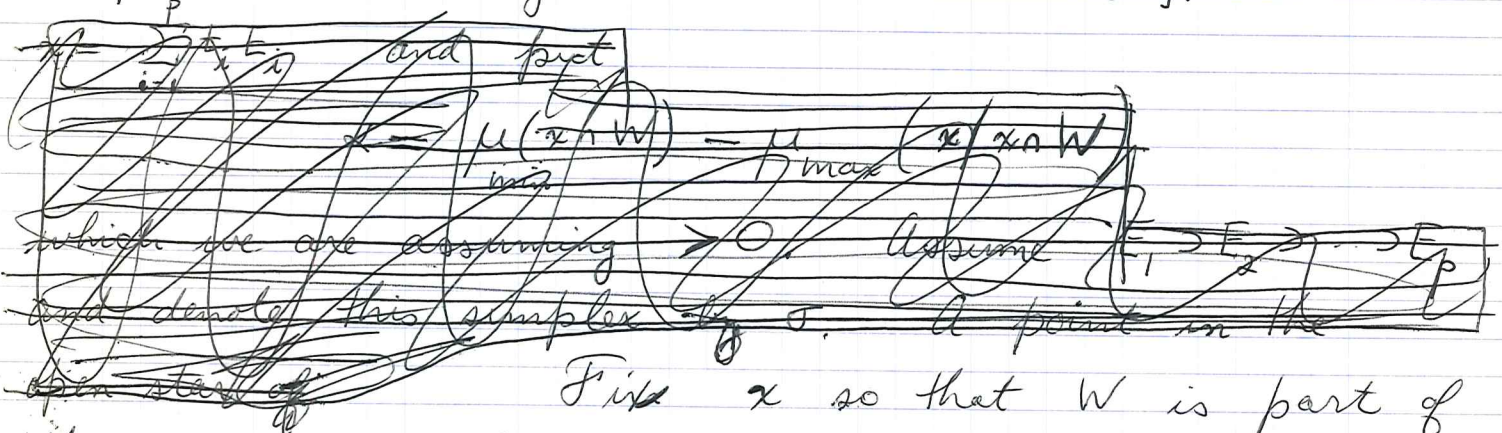 x = \sum_{i=1}^{p} t_i E_i and put
α = μ_{min}(x ∩ W) − μ_{max}(x / x ∩ W)
which we are assuming > 0. Assume E_1 ⊃ E_2 ⊃ ... ⊃ E_p
and denote this simplex by σ. A point in the
open star of Fix x so that W is part of